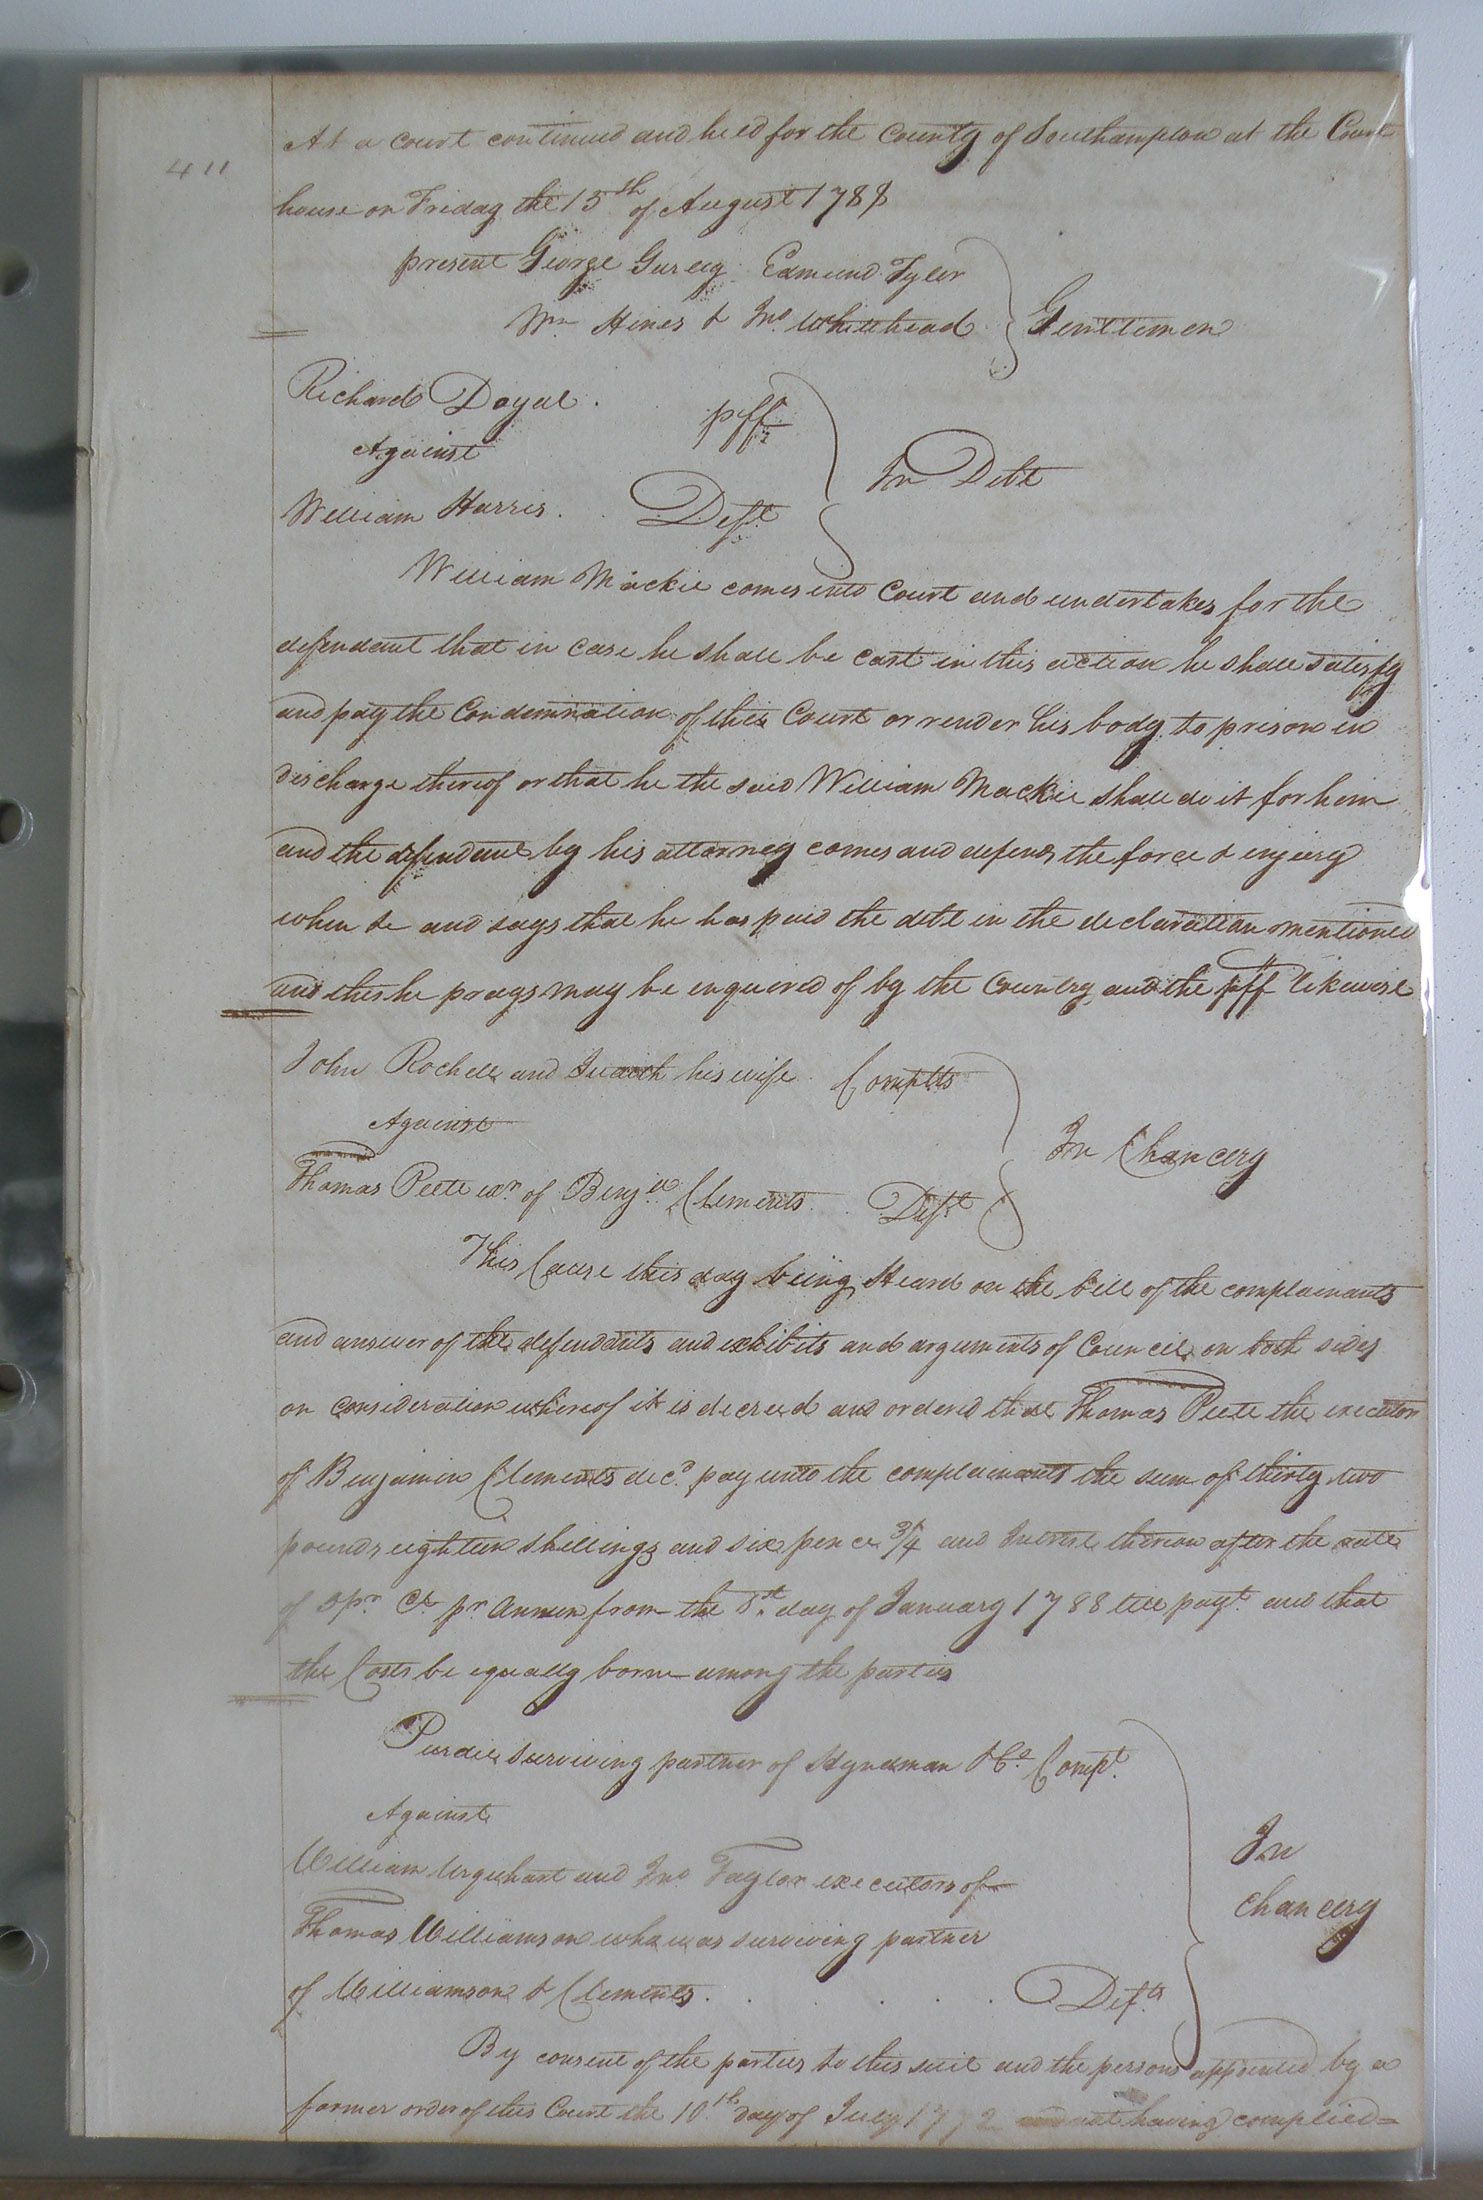 411
At a court continued and held for the County of Southampton at the Court
house on Friday the 15th of August 1788
present George Gurley Edmund Tyler
Wm Hines & Jno. Whitehead Gentlemen
Richard Doyal. pff
Against In Debt
William Harris. Deft
William Mackie comes into Court and undertakes for the
defendant that in case he shall be cast in this action he shall satisfy
and pay the Condemnation of this Court or render his body to prison in
discharge thereof or that he the said William Mackie shall do it for him
and the defendant by his attorney comes and defends the force & injury
when &c and says that he has paid the debt in the declaration mentioned
and this he prays may be enquired of by the Country and the pff likewise
John Rochell and Judith his wife Complts
Against In Chancery
Thomas Peete exr of Benja Clements. Deft
This Cause this day being Heard on the bill of the complainants
and answer of the defendants and exhibits and arguments of Council on both sides
on consideration whereof it is decreed and ordered that Thomas Peete the executor
of Benjamin Clements decd. pay unto the complainants the sum of thirty two
pounds eighteen shillings and six pence 3/4 and Interest thereon after the rate
of 5 pr Ct pr Annum from the 1st day of January 1788 till payt. and that
the Costs be equally borne among the parties
Purdie surviving partner of Hyndman & Co. Compt.
Against
William Urquhart and Jno Taylor executors of In
Thomas Williamson who was surviving partner chancery
of Williamson & Clements. . . . . Defts
By consent of the parties to this suit and the persons appointed by a
former order of this Court the 10th day of July 1772 not having complied=